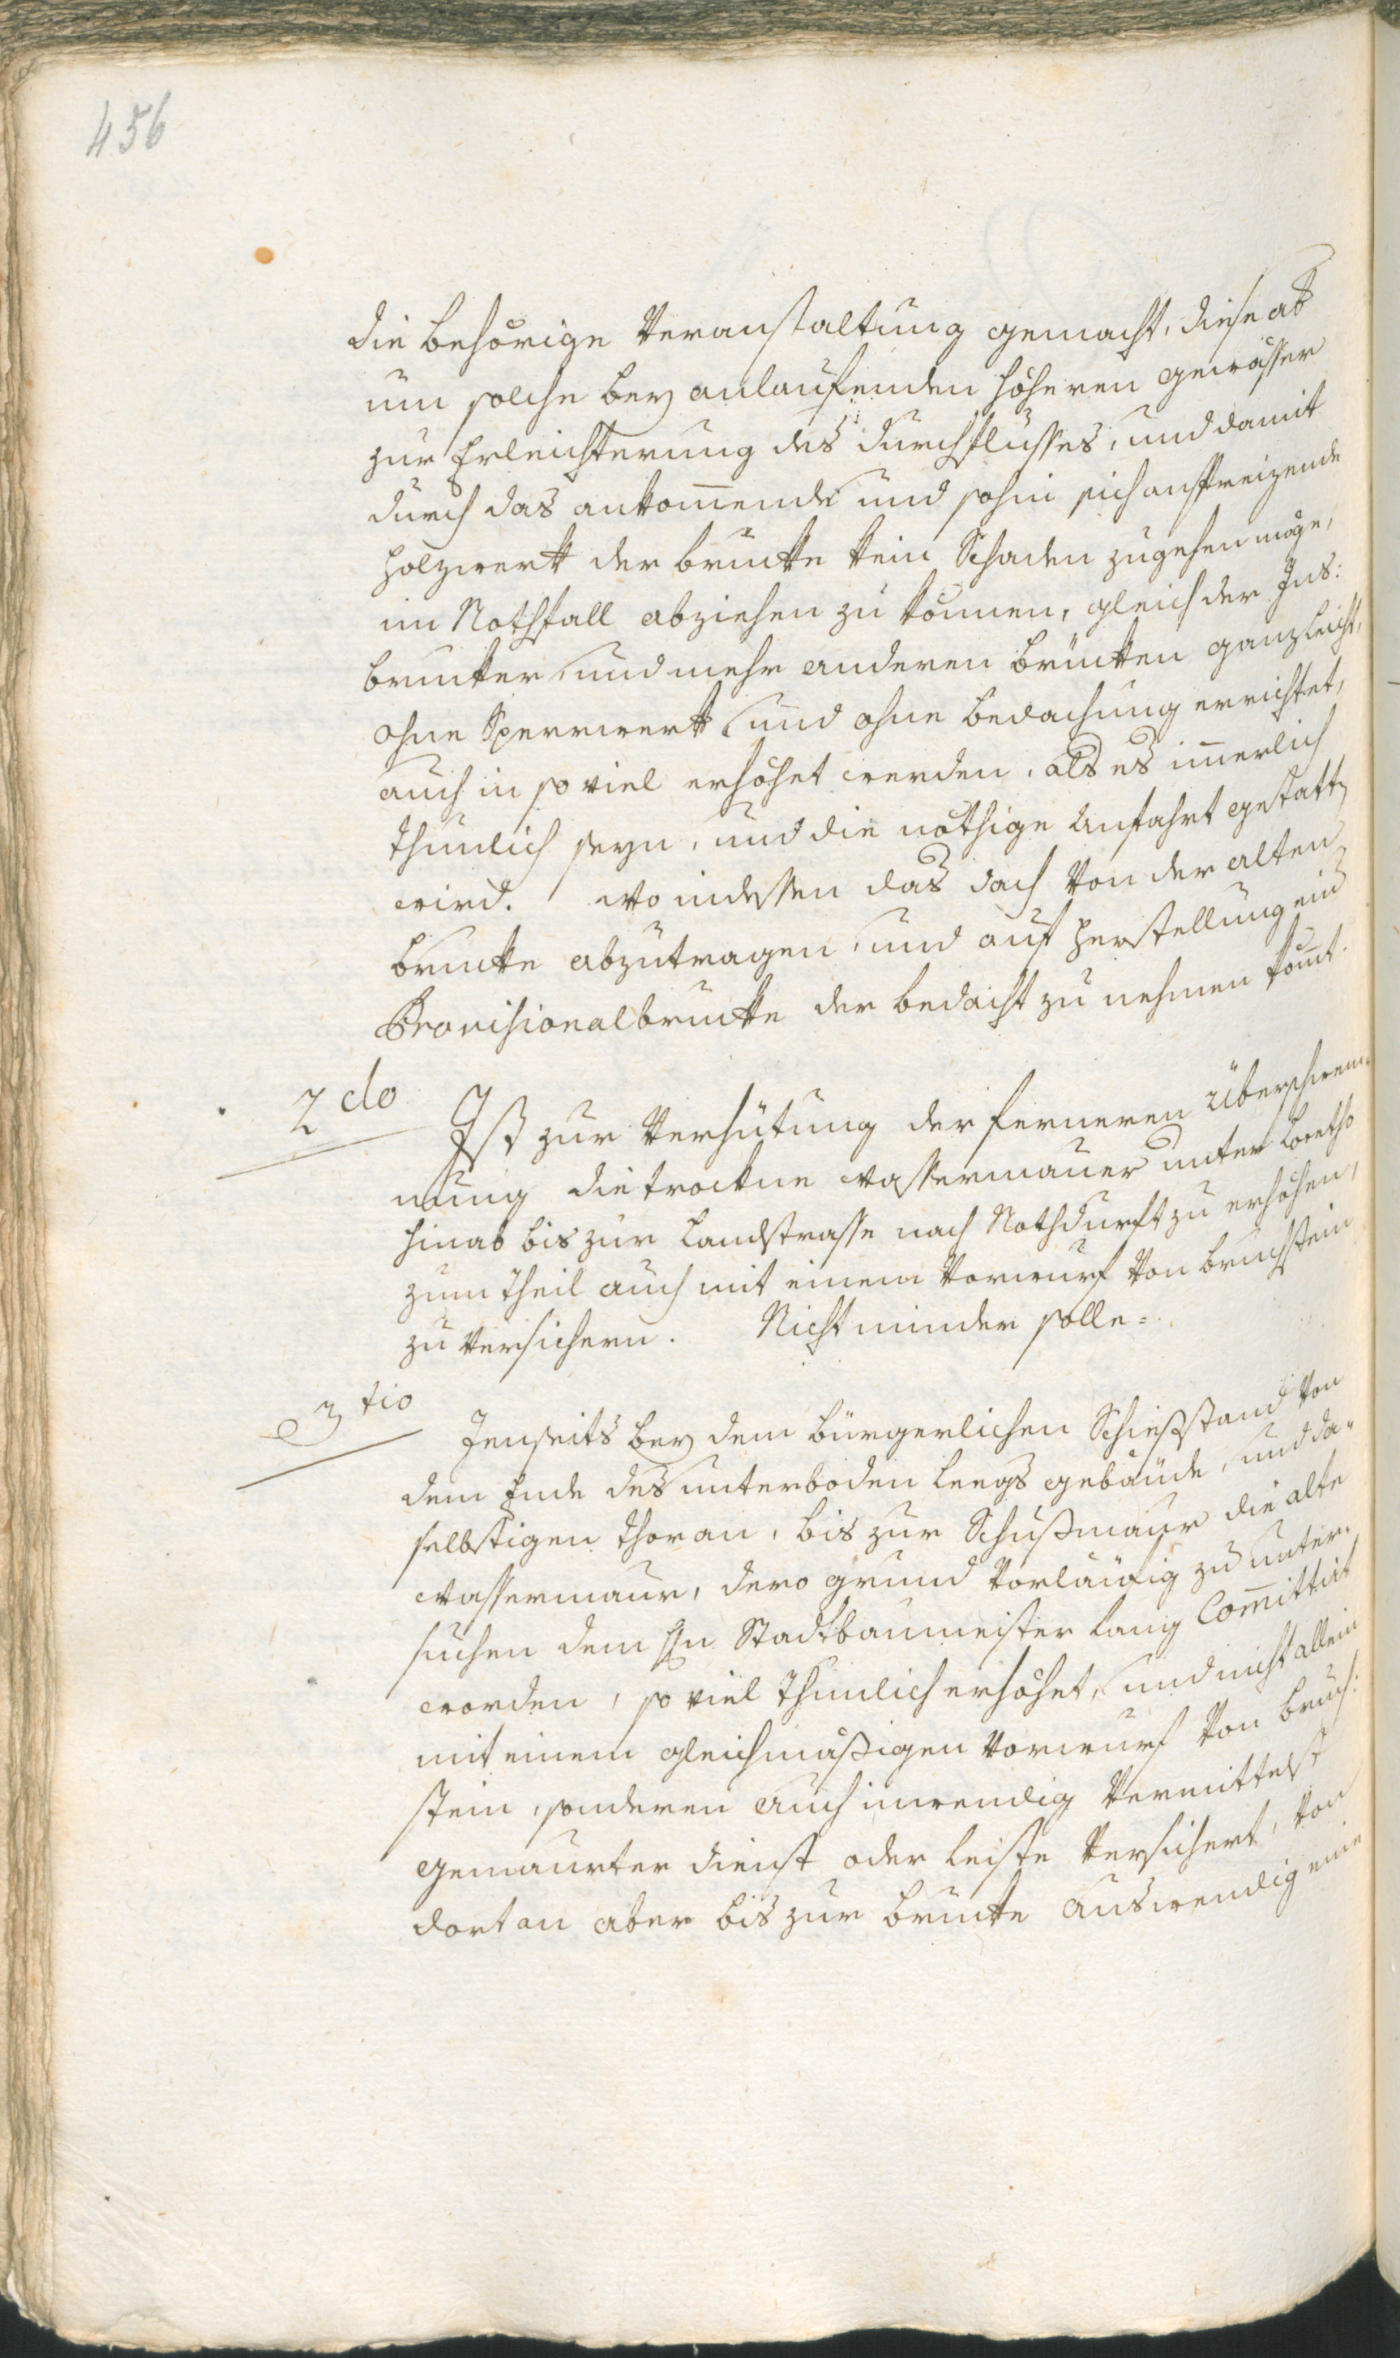 456
die behörige Veranstaltung gemacht, diese ab
um solche bey anlaufenden höheren gewässer
zur Erleichterung des durchflusses, und damit
durch das ankom̄ende und sohin sich anspreizende
holzwerkh der brucke kein Schaden zugehen möge,
im Nothfall abziehen zu können, gleich der Ins:
brucker und mehr anderen brücken ganz leicht,
ohne Sperrwerkh und ohne bedachung errichtet,
auch in so viel erhöhet werden, als es im̄erlich
thunlich seyn, und die nöthige Anfahrt gestatten
wird. Wo indessen das dach von der alten
brucke abzutragen, und auf herstellung ein
Provisionalbrucke der bedacht zu nehmen kom̄t.
2do Ist zur Verhütung der ferneren überschwem-
mung die trockne Wassermauer unter Loretho
hinab bis zur Landstrasse nach Nothdurft zu erhöhen,
zum theil auch mit einem Vorwurf von bruchstein
zu versichern. Nicht minder solle=
3tio Jenseits bey dem bürgerlichen Schießstand von
dem Ende des unterboden Leegs gebäude, und da-
selbstigen thor an, bis zur Schußmaur die alte
Wassermaur, dero grund vorläufig zu unter-
suchen dem Hn Stadtbaumeister Lang Com̄ittirt
worden, so viel thunlich erhöhet, und nicht allein
mit einem gleichmäßigen Vorwurf von bruch:
stein, sonderen auch inwendig vermittelst
gemaurter dienst oder leiste versichert, von
dort an aber bis zur brucke auswendig eine